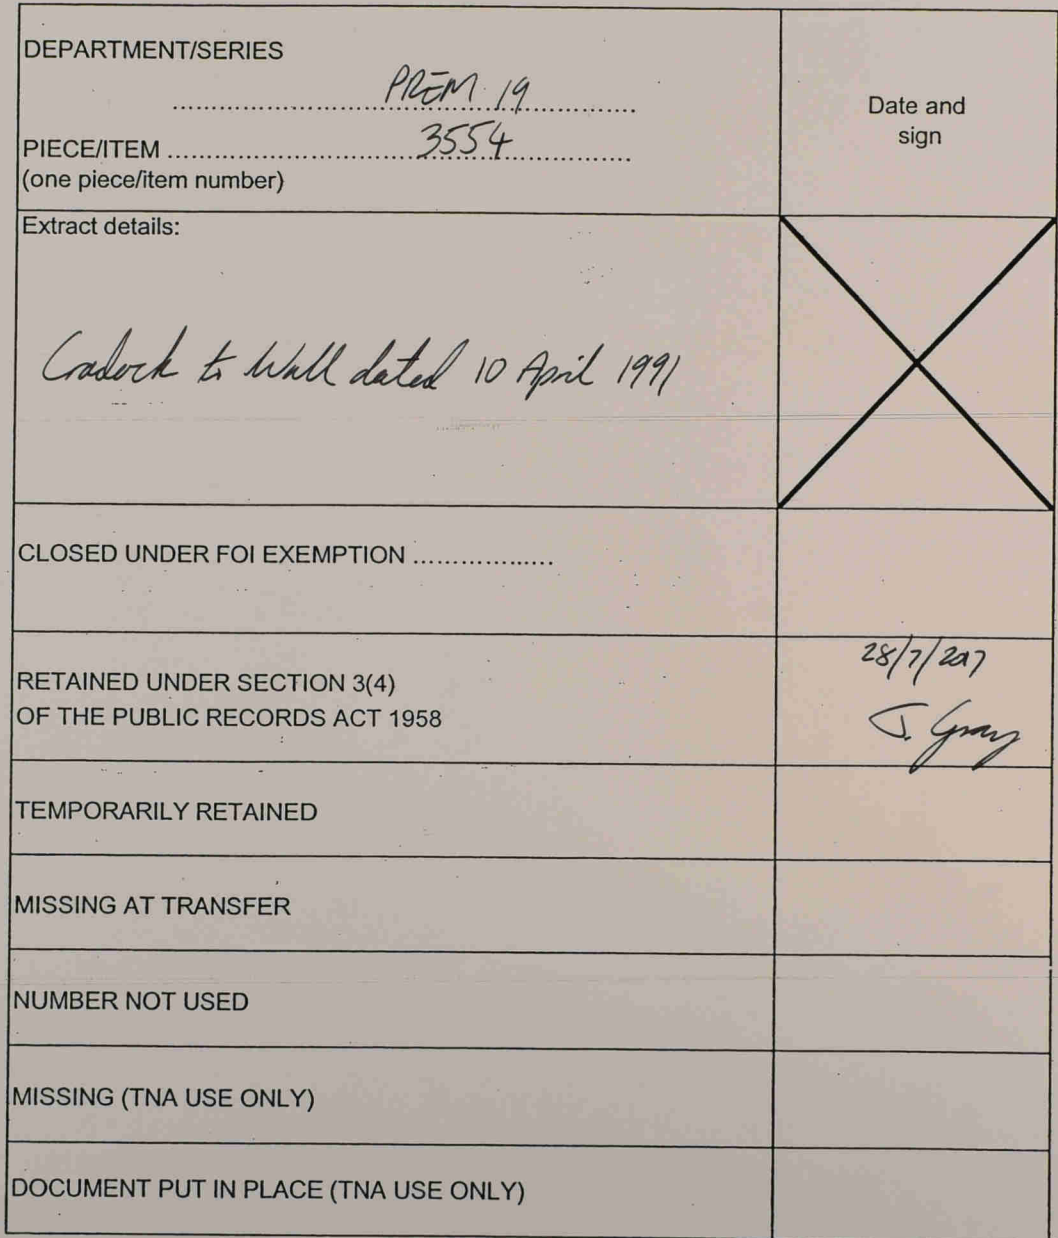 DEPARTMENT/SERIES
PREM 19
Date and
sign
PIECE/ITEM ........................ 3554 ........................
(one piece/item number)
Extract details:
Cradock to Wall dated 10 April 1991
CLOSED UNDER FOI EXEMPTION ..................
RETAINED UNDER SECTION 3(4)
OF THE PUBLIC RECORDS ACT 1958
28/7/2017
J. Gray
TEMPORARILY RETAINED
MISSING AT TRANSFER
NUMBER NOT USED
MISSING (TNA USE ONLY)
DOCUMENT PUT IN PLACE (TNA USE ONLY)